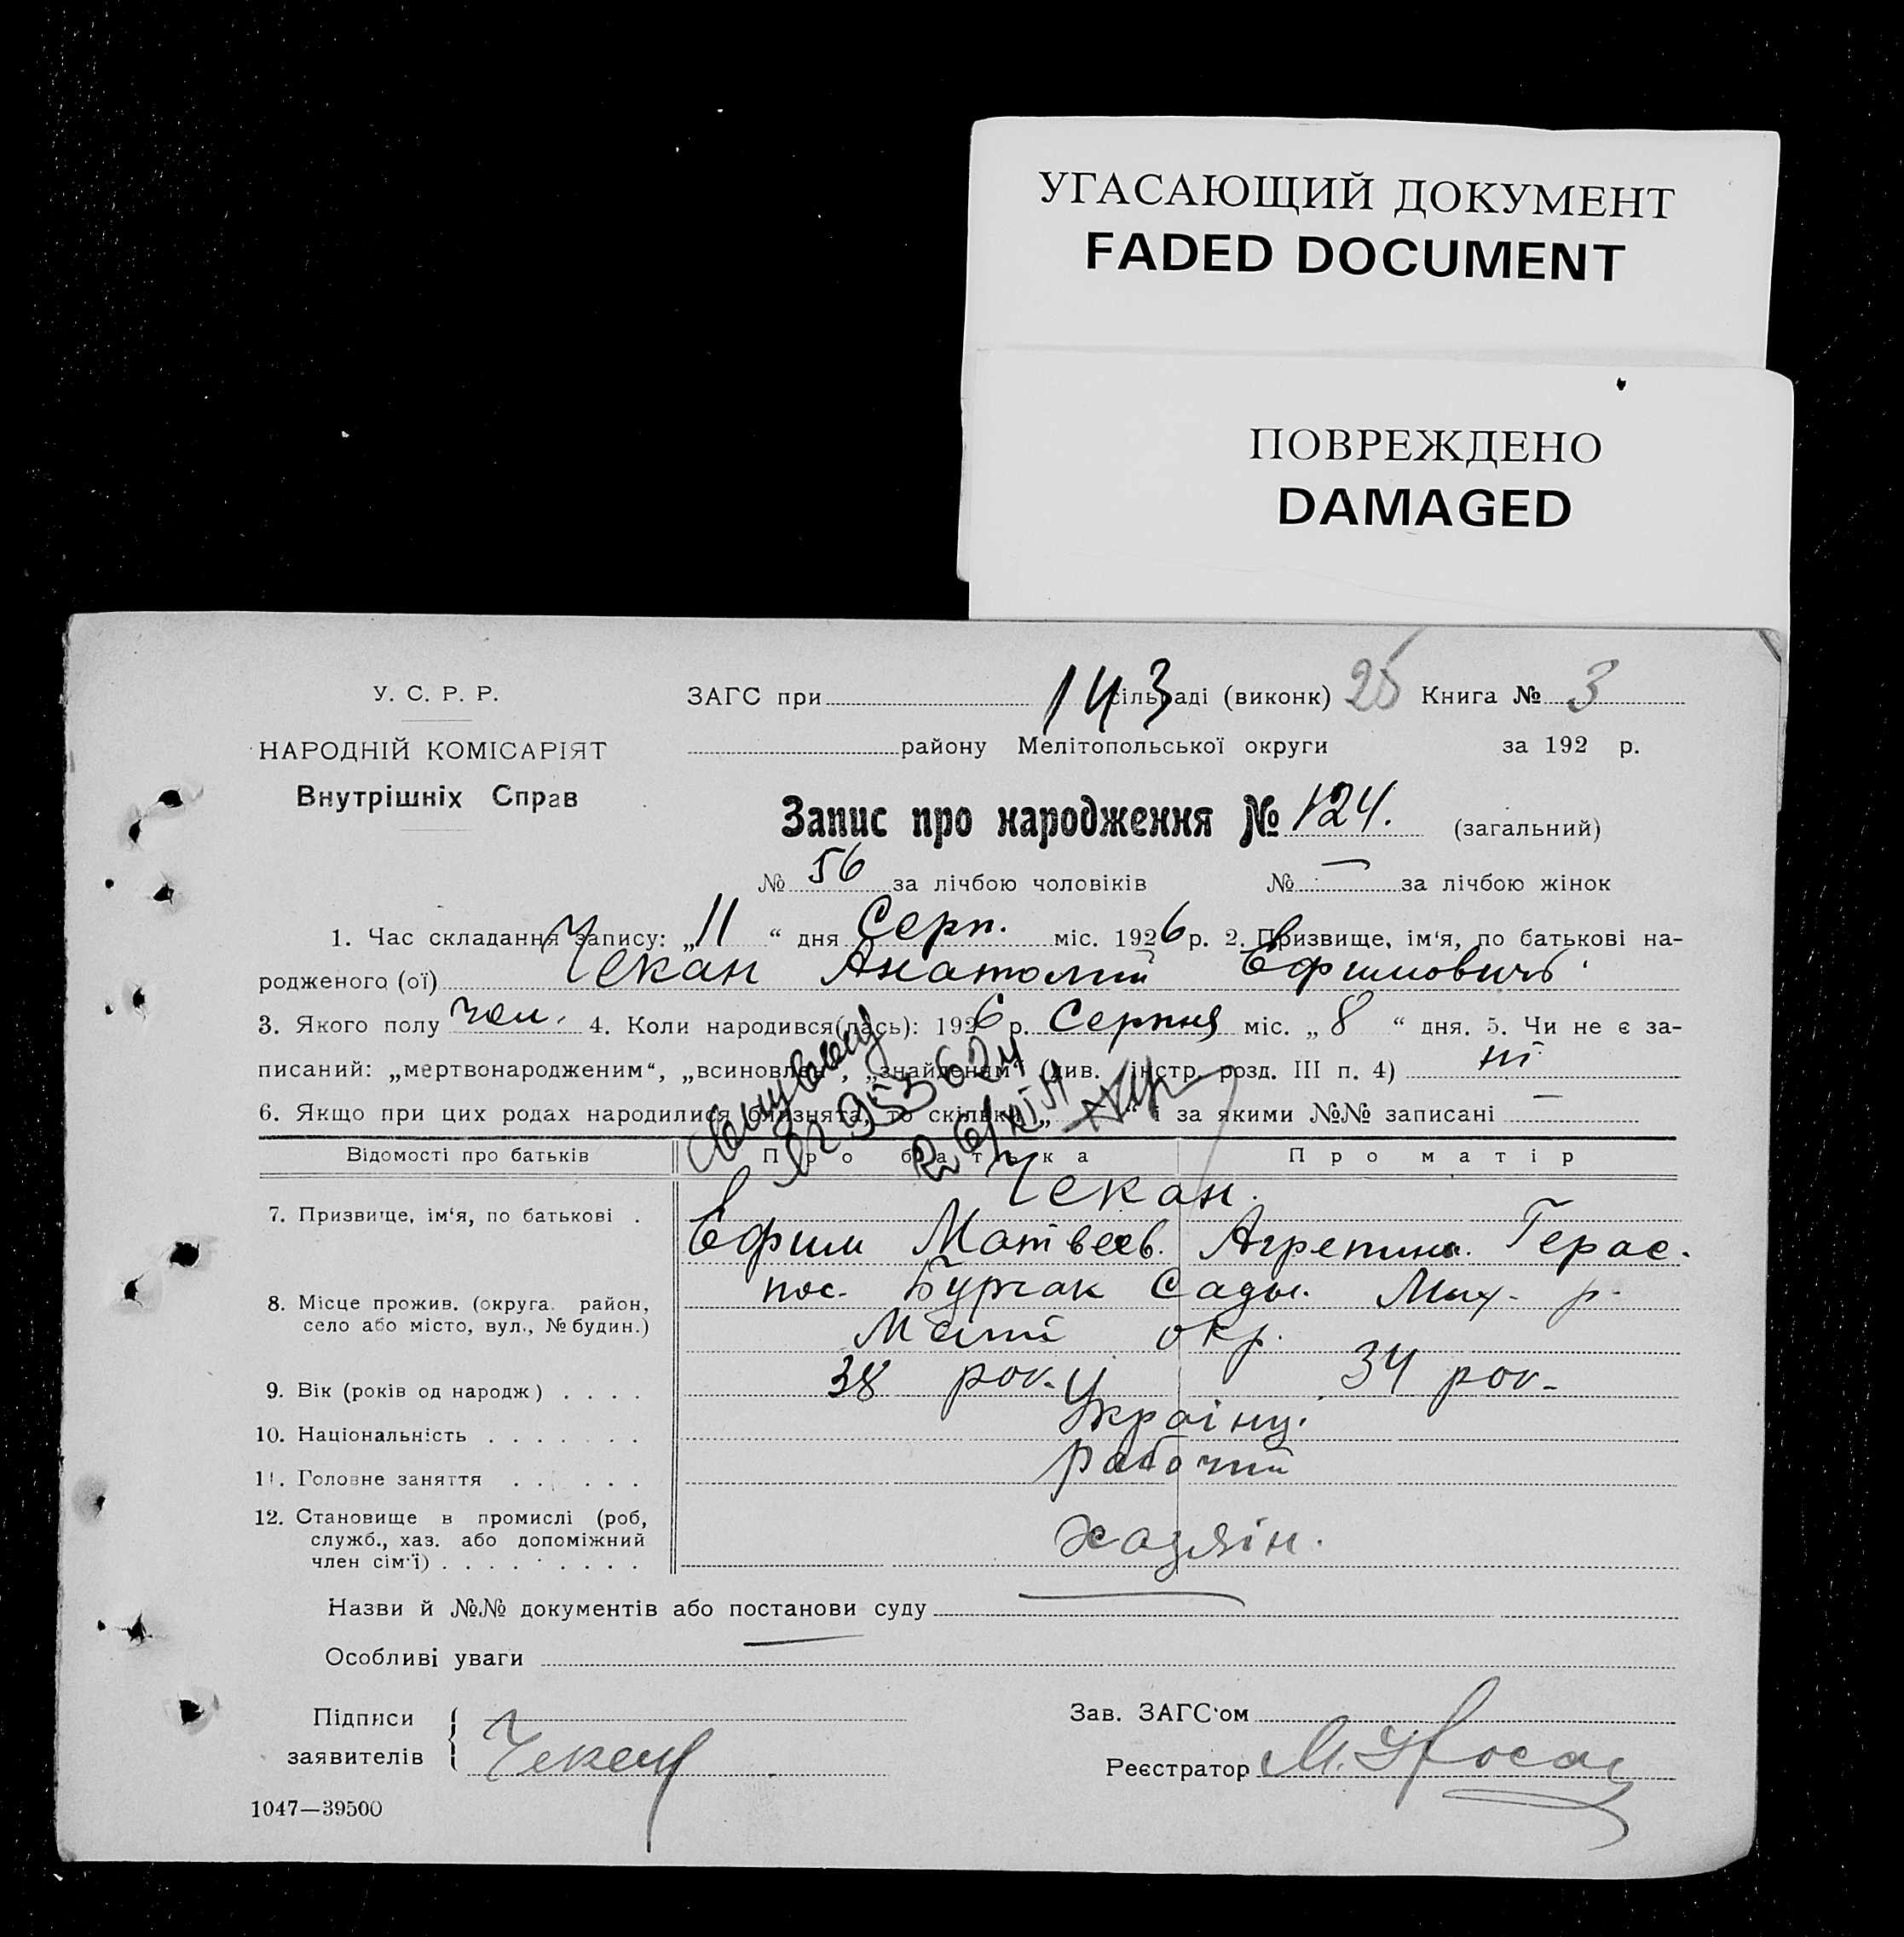 УГАСАЮЩИЙ ДОКУМЕНТ
FADED DOCUMENT
ПОВРЕЖДЕНО
DAMAGED
У. С. Р. Р.
НАРОДНІЙ КОМІСАРІЯТ
Внутрішніх Справ
ЗАГС при 143 сільраді (виконк) 25 Книга № 3
району Мелітопольської округи за 192 р.
Запис про народження № 124. (загальний)
№ 56 за лічбою чоловіків № — за лічбою жінок
1. Час складання запису: „11“ дня Серп. міс. 1926 р. 2. Призвище, ім'я, по батькові на-
родженого (ої) Чекан Анатолий Ефимовичъ
3. Якого полу чол. 4. Коли народився(лась): 1926 р. Серпня міс. „8“ дня. 5. Чи не є за-
писаний: „мертвонародженим“, „всиновлен“, „знайденим“ (див. інстр. розд. III п. 4) ні
6. Якщо при цих родах народилися близнята, то скільки „ “ і за якими №№ записані —
953624
Відомості про батьків Про батька Про матір
Чекан.
7. Призвище, ім'я, по батькові . Ефим Матвеев. Агрепина. Герас.
пос. Бурчак Сады. Мих. р.
8. Місце прожив. (округа, район,
село або місто, вул., № будин.)
Меліт окр.
9. Вік (років од народж) . . . . 38 рок. 34 рок.
10. Національність . . . . . . . Україну.
11. Головне заняття . . . . . . рабочий
12. Становище в промислі (роб,
служб., хаз. або допоміжний
член сім'ї) . . . . . . . . . хазяін.
Назви й №№ документів або постанови суду
Особливі уваги
Підписи
заявителів Чекан
Зав. ЗАГС'ом
Реєстратор
1047—39500